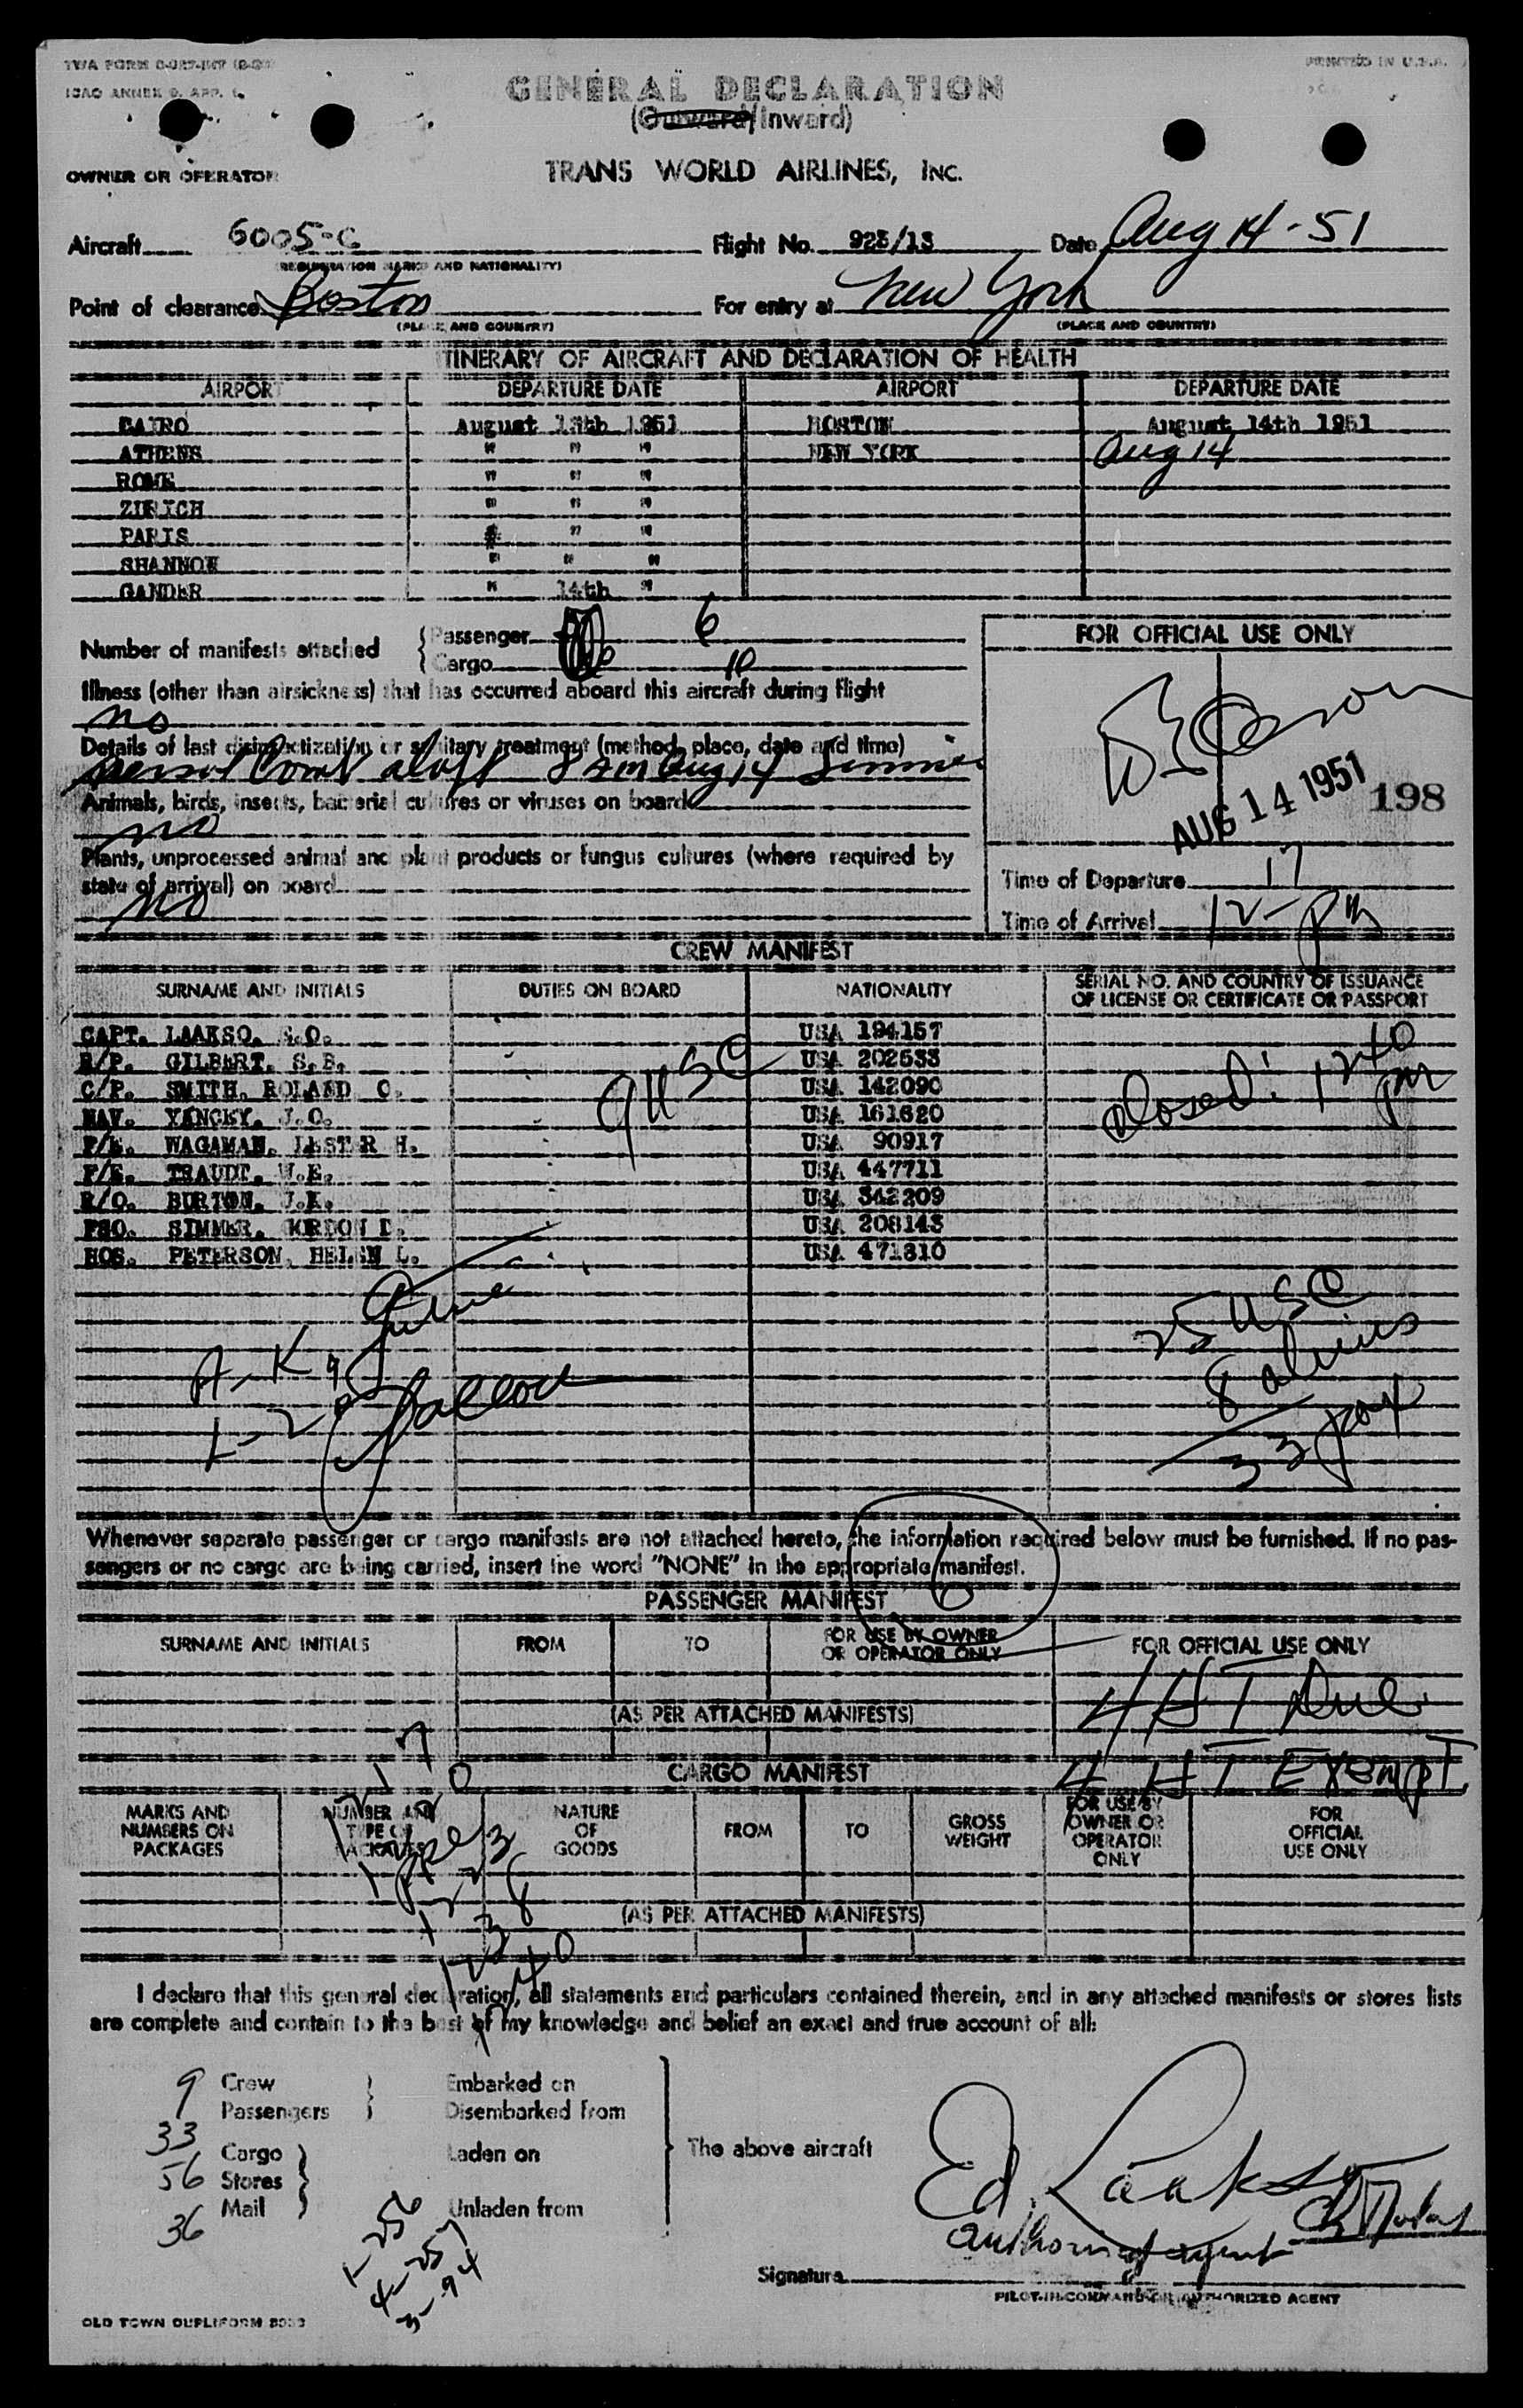 PRINTED IN U.S.A.
GENERAL DECLARATION
(Outward/Inward)
OWNER OR OPERATOR
TRANS WORLD AIRLINES, INC.
Aircraft 6005-C Flight No. 923/13 Date Aug 14-51
(REGISTRATION MARKS AND NATIONALITY)
Point of clearance Boston For entry at New York
(PLACE AND COUNTRY) (PLACE AND COUNTRY)
ITINERARY OF AIRCRAFT AND DECLARATION OF HEALTH
AIRPORT DEPARTURE DATE AIRPORT DEPARTURE DATE
CAIRO August 13th 1951 BOSTON August 14th 1951
ATHENS " " " NEW YORK Aug 14
ROME " " "
ZURICH " " "
PARIS " "
SHANNON " " "
GANDER " 14th "
Number of manifests attached Passenger 6
Cargo 10
FOR OFFICIAL USE ONLY
Illness (other than airsickness) that has occurred aboard this aircraft during flight
no
Details of last disinsectization or sanitary treatment (method, place, date and time)
aerosol bomb aloft 8 am Aug 14 Simmer
AUG 14 1951 198
Animals, birds, insects, bacterial cultures or viruses on board
no
Plants, unprocessed animal and plant products or fungus cultures (where required by
state of arrival) on board
no
Time of Departure 17
Time of Arrival 12- PM
CREW MANIFEST
SURNAME AND INITIALS DUTIES ON BOARD NATIONALITY SERIAL NO. AND COUNTRY OF ISSUANCE
OF LICENSE OR CERTIFICATE OR PASSPORT
CAPT. LAAKSO, E.O. USA 194157
R/P. GILBERT, S.B. USA 202533
C/P. SMITH, ROLAND C. USA 142090
NAV. YANCEY, J.O. USA 161620
F/E. WAGAMAN, LESTER H. USA 90917
F/E. TRAUDT, W.E. USA 447711
R/O. BURTON, J.K. USA 342209
PSO. SIMMER, KERDON D. USA 208143
HOS. PETERSON, HELEN L. USA 471310
9 USC
Closed! 1240 PM
25 USC
8 aliens
33 pax
Whenever separate passenger or cargo manifests are not attached hereto, the information required below must be furnished. If no pas-
sengers or no cargo are being carried, insert the word "NONE" in the appropriate manifest.
6
PASSENGER MANIFEST
SURNAME AND INITIALS FROM TO FOR USE BY OWNER
OR OPERATOR ONLY FOR OFFICIAL USE ONLY
(AS PER ATTACHED MANIFESTS)
4 HT Due
4 HT Exempt
CARGO MANIFEST
MARKS AND
NUMBERS ON
PACKAGES
NUMBER AND
TYPE OF
PACKAGES
NATURE
OF
GOODS
FROM TO GROSS
WEIGHT
FOR USE BY
OWNER OR
OPERATOR
ONLY
FOR
OFFICIAL
USE ONLY
(AS PER ATTACHED MANIFESTS)
I declare that this general declaration, all statements and particulars contained therein, and in any attached manifests or stores lists
are complete and contain to the best of my knowledge and belief an exact and true account of all:
9 Crew Embarked on
Passengers Disembarked from
33
Cargo Laden on The above aircraft
56 Stores
36 Mail Unladen from
Ed. Laakso
authorized agent
Signature
PILOT-IN-COMMAND OR AUTHORIZED AGENT
OLD TOWN DUPLIFORM